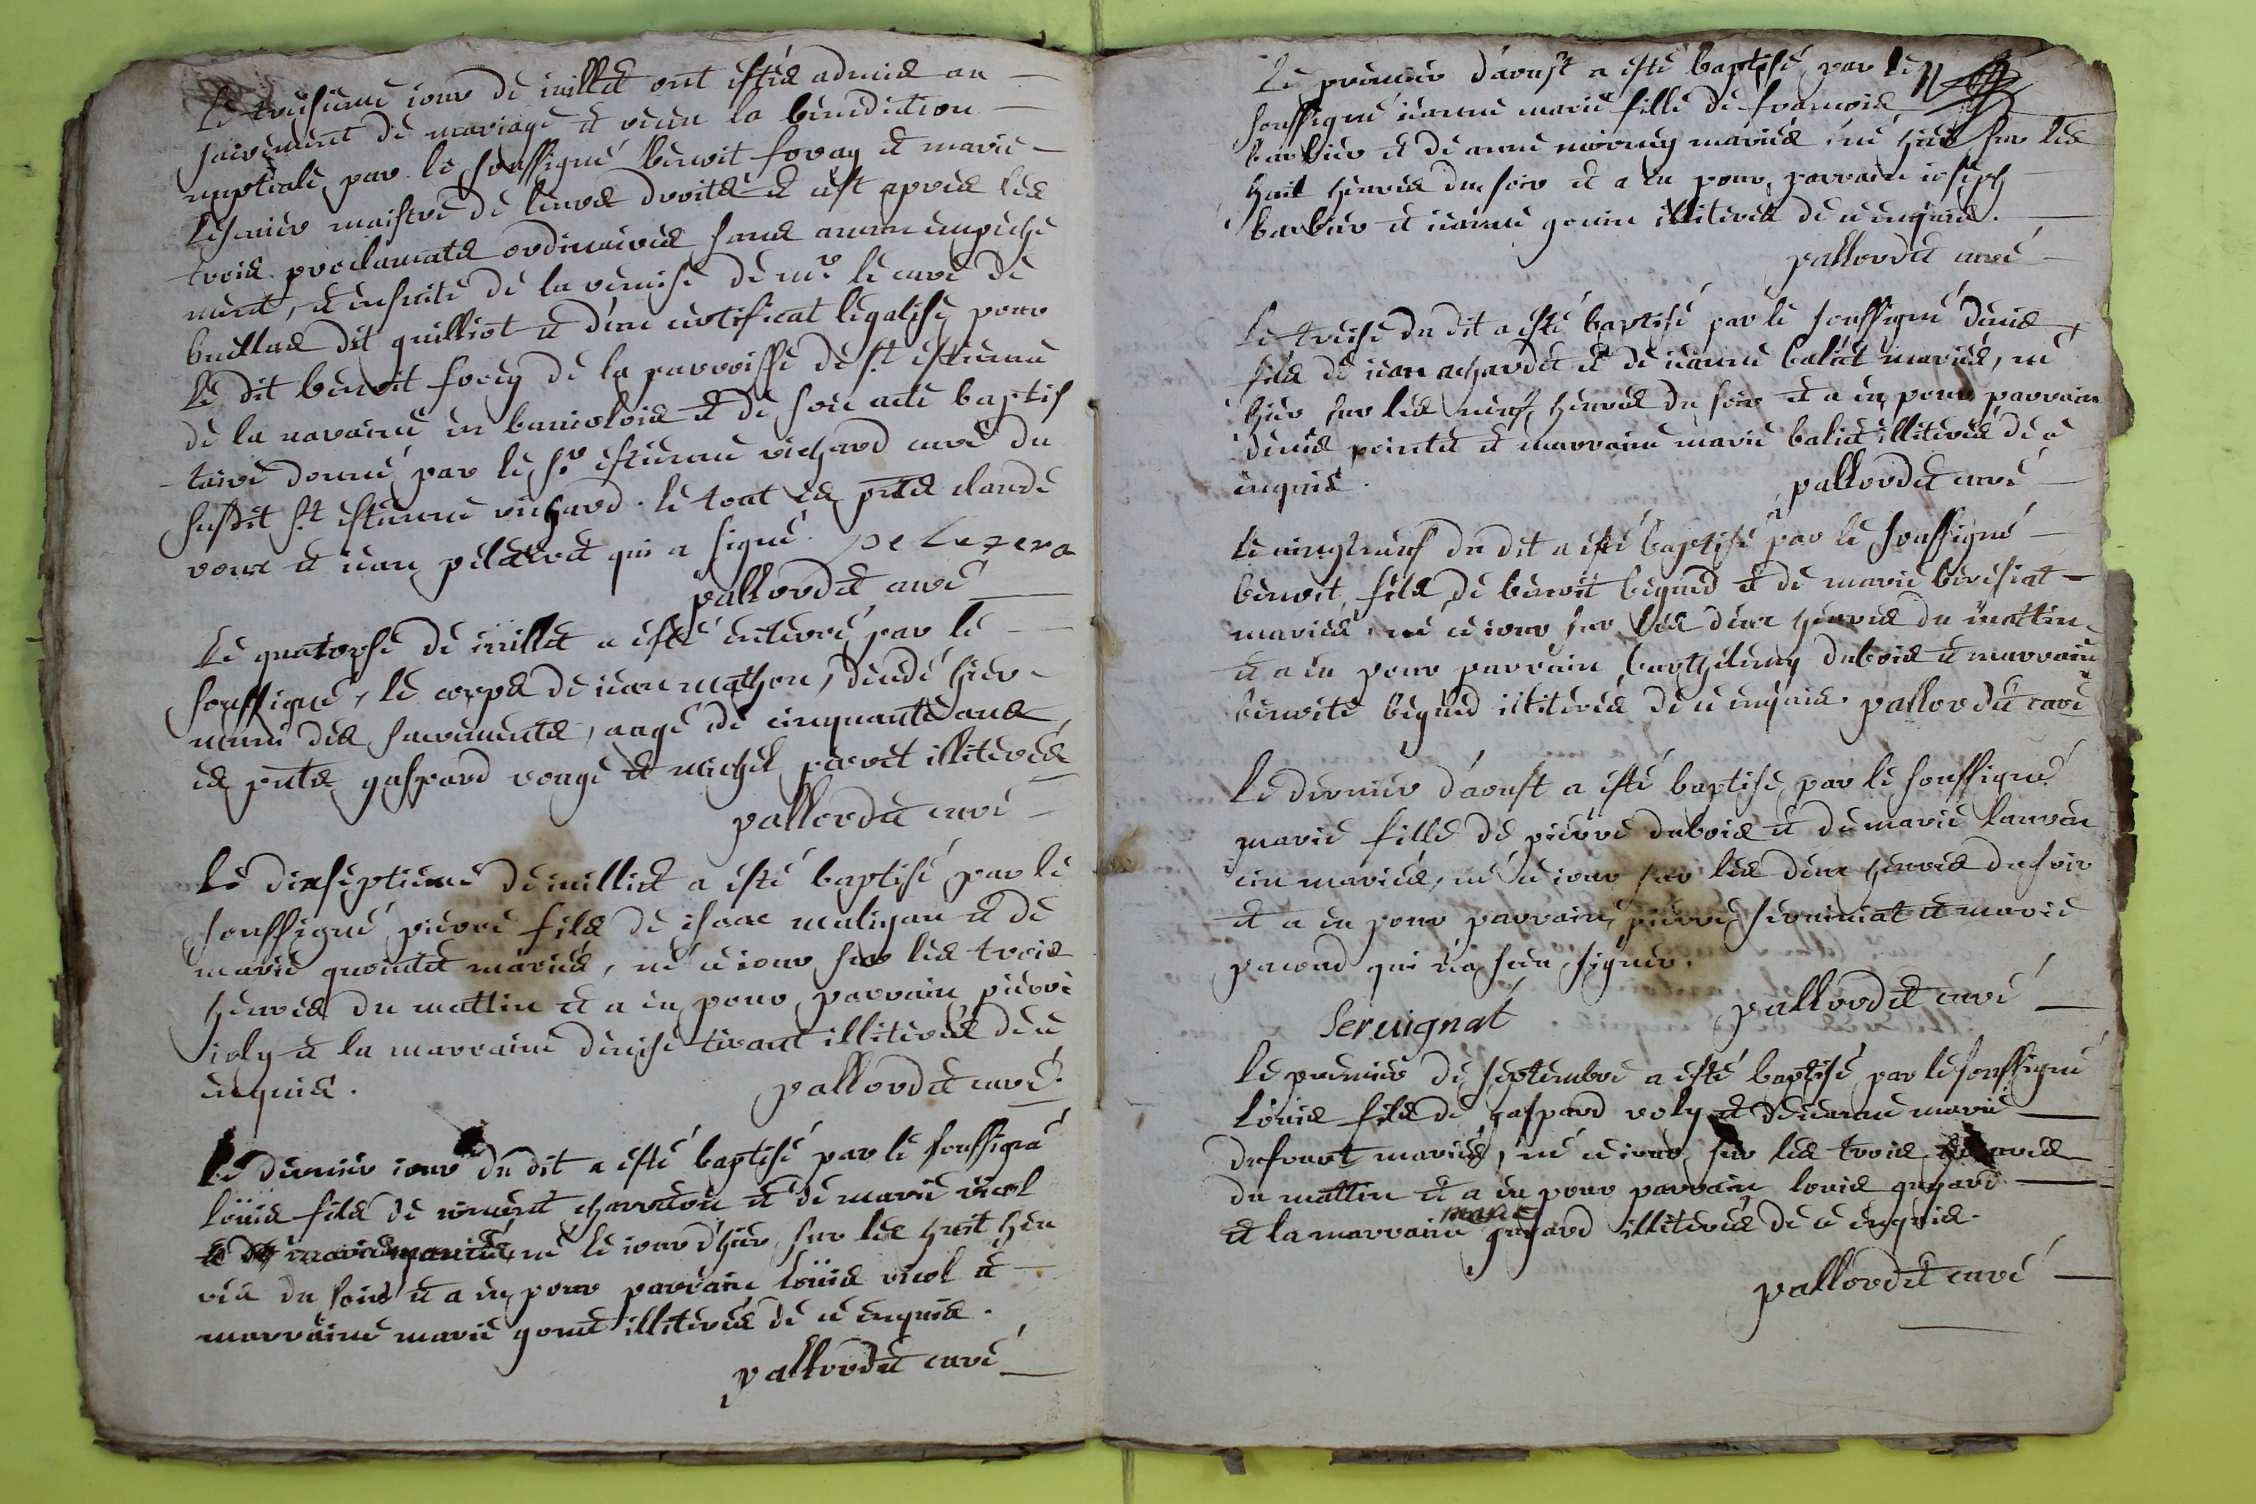 Le treisieme iour de iuillet ont estés admis au
sacrement de mariage et receu la benediction
nuptiale par le soussigné benoit foray et marie
mestre de leurs droits et c'est apres les
trois proclamats ordinaires sans aucun empeche
ment, et ensuite de la remise de mr le curé de
dit guilliot et d'un certificat legalisé pour
le dit benoit forey de la parroisse de st estienne
de la en et de son acte baptis
taire donné par le sr estienne richard curé du
susdit st estienne richard. le tout es pnts claude
roux et iean pelaera qui a signé. pelezera
pallordet curé
Le quatorse de iuillet a esté enterré par le
soussigné, le corps de iean mathon, décédé hier
muni des sacrements, aagé de cinquante ans
es pnts gaspard rouge et michel perret illiterés
pallordet curé
Le dixseptieme de iuillet a esté baptisé par le
soussigné pierre fils de isaac maligan et de
marie pointet mariés, né ce iour sur les trois
heures du mattin et a eu pour parrain pierre
ioly et la marraine denise tirant illiterés de ce
enquis. pallordet curé.
Le dernier iour du dit a esté baptisé par le soussigné
loüis fils de vincent charreton et de marie viol
mariés, né le iour d'hier sur les huit heu
res du soir et a eu pour parrain loüis viol et
marraine marie illiterés de ce enquis.
pallordet curé
Le premier d'aoust a esté baptisé par le
soussigné ieanne marie fille de francois
barbier et de anne mariés, né hier sur les
huit heures du soir et a eu pour parrain ioseph
barbier et ieanne gonin illiterés de ce enquis.
pallordet curé
Le treise du dit a esté baptisé par le soussigné denis
fils de iean achardet et de ieanne baliet mariés, né
hier sur les neuf heures du soir et a eu pour parrain
denis pointet et marraine marie baliet illiterés de ce
enquis. pallordet curé
Le vingtneuf du dit a esté baptisé par le soussigné
benoit fils de benoit begued et de marie beresiat
mariés né ce iour sur les deux heures du mattin
et a eu pour parrain barthelemy dubois et marraine
benoite begued illiterés de ce enquis. pallordet curé
Le dernier d'aoust a esté baptisé par le soussigné
marie fille de pierre dubois et de marie lauren
cin mariés, né ce iour sur les deux heures du soir
et a eu pour parrain pierre serviniat et marie
pacoud qui n'a sceu signer.
Seruignat pallordet curé
Le premier de septembre a esté baptisé par le soussigné
loüis fils de gaspard roly et de ieanne marie
defrant mariés, né ce iour sur les trois heures
du mattin et a eu pour parrain louis guyard
marie
et la marraine guyard illiterés de ce enquis.
pallordet curé